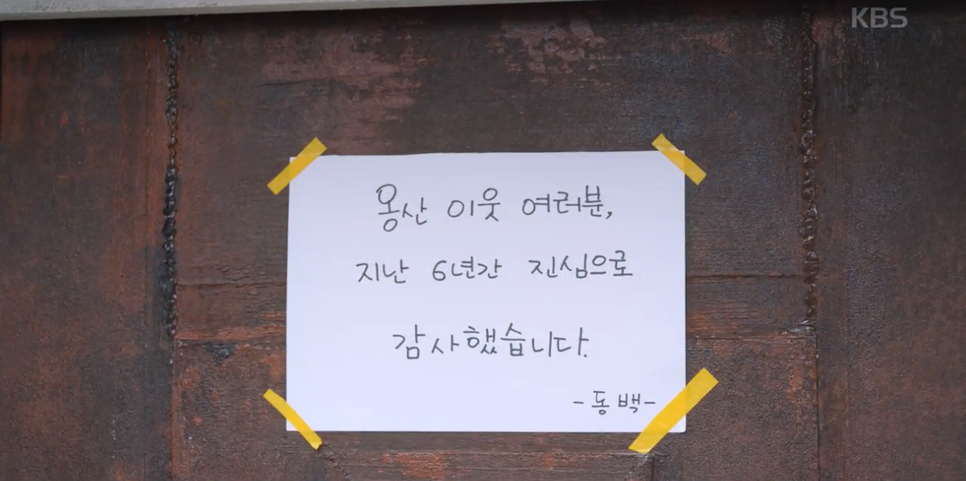 KBS
옹산 이웃 여러분,
지난 6년간 진심으로
감사했습니다.
-동백-